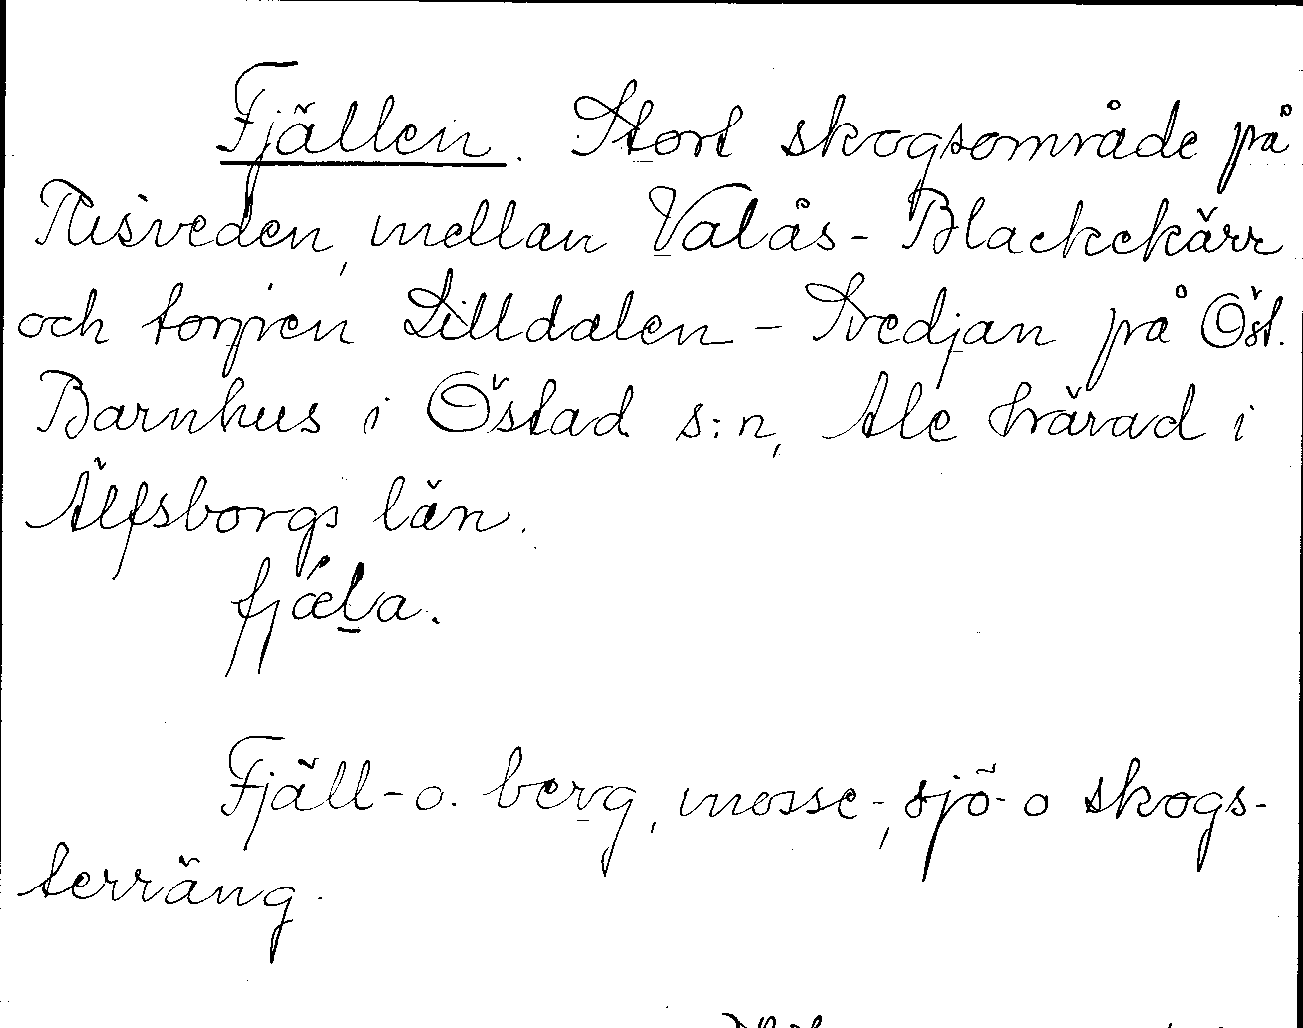 Fjällen. Stort skogsområde på
Risveden, mellan Valås - Blackekärr
och torpen Lilldalen - Svedjan på Öst.
Barnhus i Östad s:n, Ale härad i
Älfsborgs län.
fjæ̀l̲a.
Fjäll- o. berg, mosse-, sjö- o skogs-
terräng.